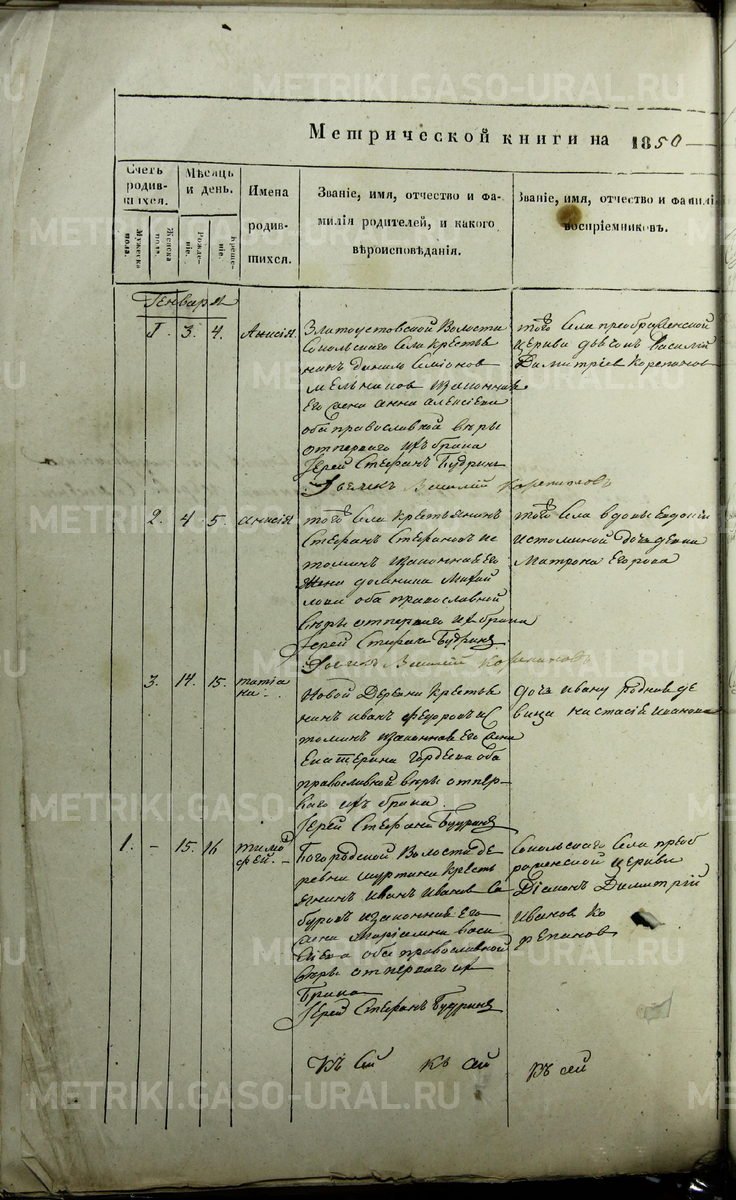 METRIKI.GASO-URAL.RU
Метрической книги на 1850
Счетъ родившихся.
Мужеска пола.
Женска пола.
Мѣсяцъ и день.
Рожденіе.
Крещеніе.
Имена родившихся.
Званіе, имя, отчество и фамилія родителей, и какого вѣроисповѣданія.
Званіе, имя, отчество и фамилія воспріемниковъ.
Генваря
1. 3. 4. Анисія
Златоустовской Волости
Сокольскаго Села крестья
нинъ данило Симіонов
Мельников и законная
Его анна алексіева
оба православной вѣры
отперваго ихъ брака
Іерей Стефанъ Будринъ
Василій Корепановъ
того Села преображенской
церкви Василій
Димитріев Корепанов
2. 4. 5. анисія
того Села крестьянинъ
Стефанъ Стефановъ ис
томинъ изаконная Его
Жена домнина Михай
лова оба православной
вѣры отперваго ихъ брака
Іерей Стефанъ Будринъ
Василій Корепановъ
того Села вдовы Евдокіи
истоминой дочь девка
Матрона Егорова
3. 14. 15. татіа
на
Новой Деревни Крестья
нинъ иванъ федоровъ ис
томинъ изаконная Его
Екатерина Гордеева оба
православной вѣры отпер
ваго ихъ брака
Іерей Стефанъ Будринъ
дочь ивана де
вица настасія иванова
1. - 15. 16 тимо
фей. -
Богородской Волости де
ревни шуртани кресть
янинъ Иванъ Иванов Са
буров изаконная Его
Маріамна васи
лиева оба православной
вѣры отперваго их
брака
Іерей Стефанъ Будринъ
Сокольскаго Села преоб
раженской церкви
Діаконъ Димитрій
Иванов Ко
репанов
Къ сей къ сей къ сей